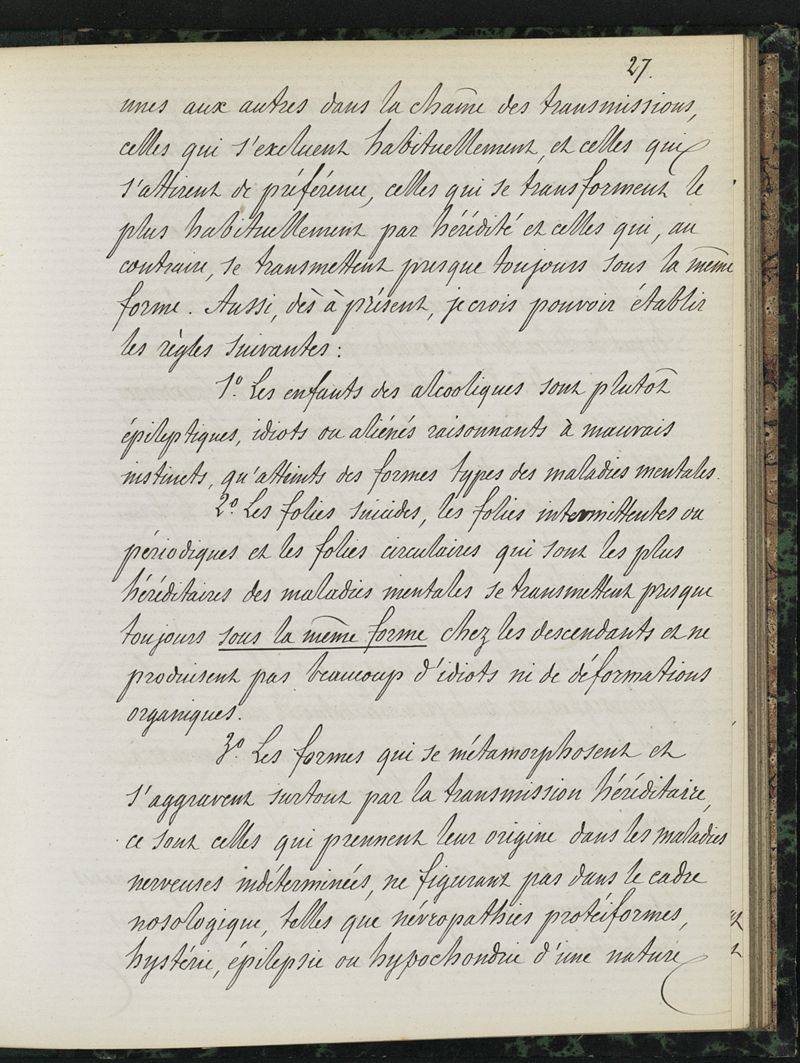 27.
unes aux autres dans la chaîne des transmissions,
celles qui s'excluent habituellement, et celles qui
s'attirent de préférence, celles qui se transforment le
plus habituellement par hérédité et celles qui, au
contraire, se transmettent presque toujours sous la même
forme. Aussi, dès à présent, je crois pouvoir établir
les règles suivantes :
1º. Les enfants des alcooliques sont plutôt
épileptiques, idiots ou aliénés raisonnants à mauvais
instincts, qu'atteints des formes types des maladies mentales.
2º. Les folies suicides, les folies intermittentes ou
périodiques et les folies circulaires qui sont les plus
héréditaires des maladies mentales se transmettent presque
toujours sous la même forme chez les descendants et ne
produisent pas beaucoup d'idiots ni de déformations
organiques.
3º Les formes qui se métamorphosent et
s'aggravent surtout par la transmission héréditaire,
ce sont celles qui prennent leur origine dans les maladies
nerveuses indéterminées, ne figurant pas dans le cadre
nosologique, telles que névropathies protéiformes,
hystérie, épilepsie ou hypochondrie d'une nature